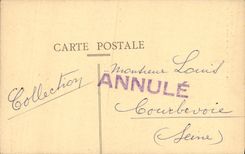 CARTE POSTALE
Collection
Monsieur Louis
ANNULÉ
Courbevoie
(Seine)